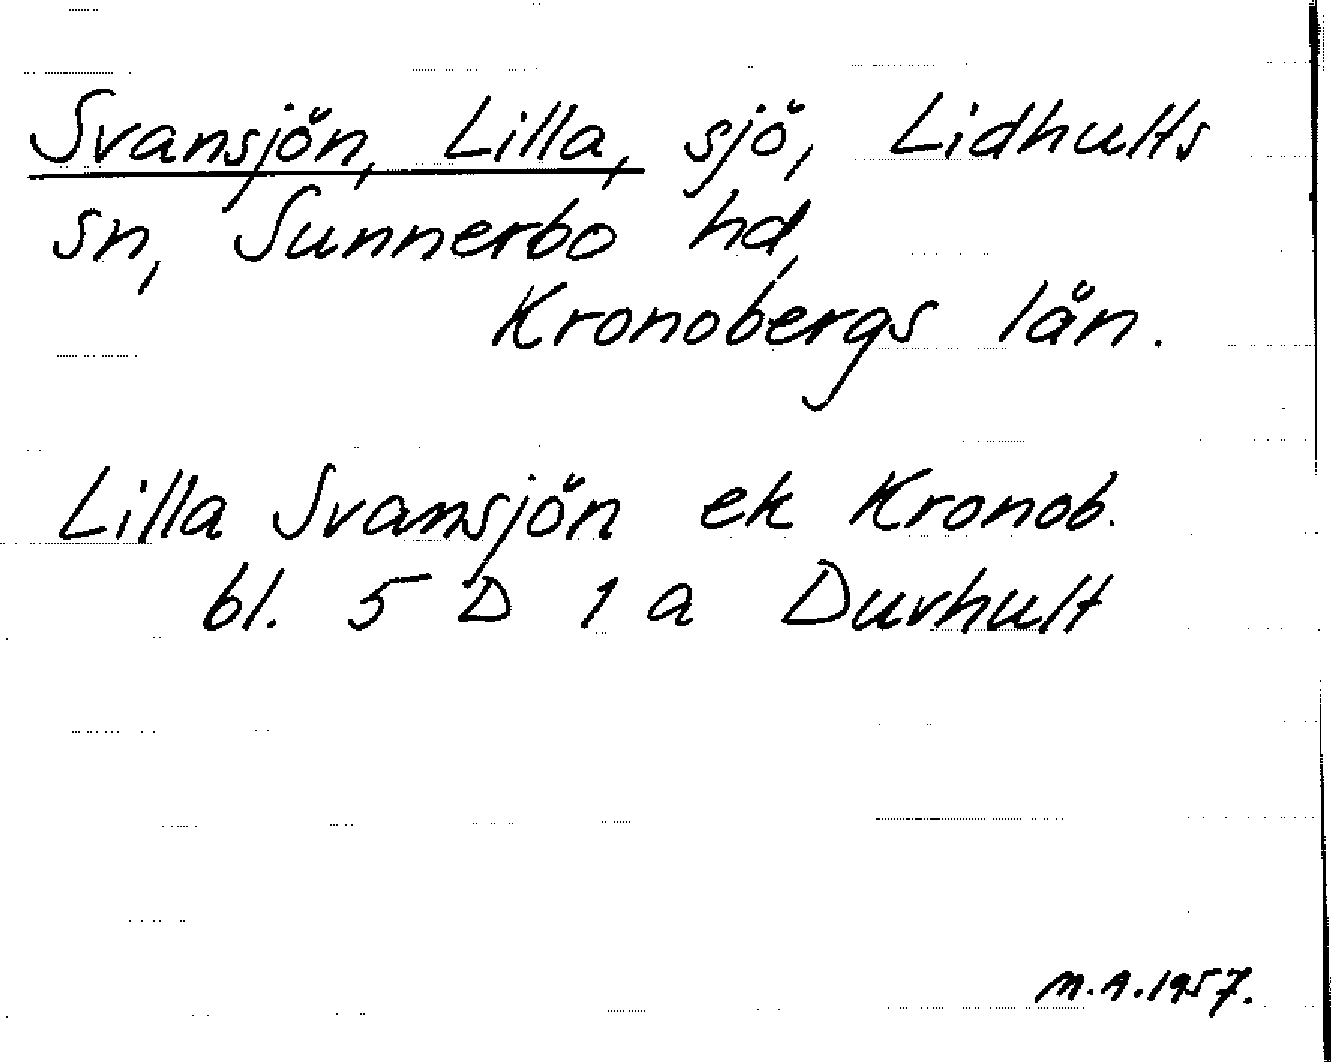 Svansjön, Lilla, sjö, Lidhults
sn, Sunnerbo hd,
Kronobergs län.
Lilla Svansjön ek Kronob.
bl. 5 D 1 a Duvhult
M.A.1957.